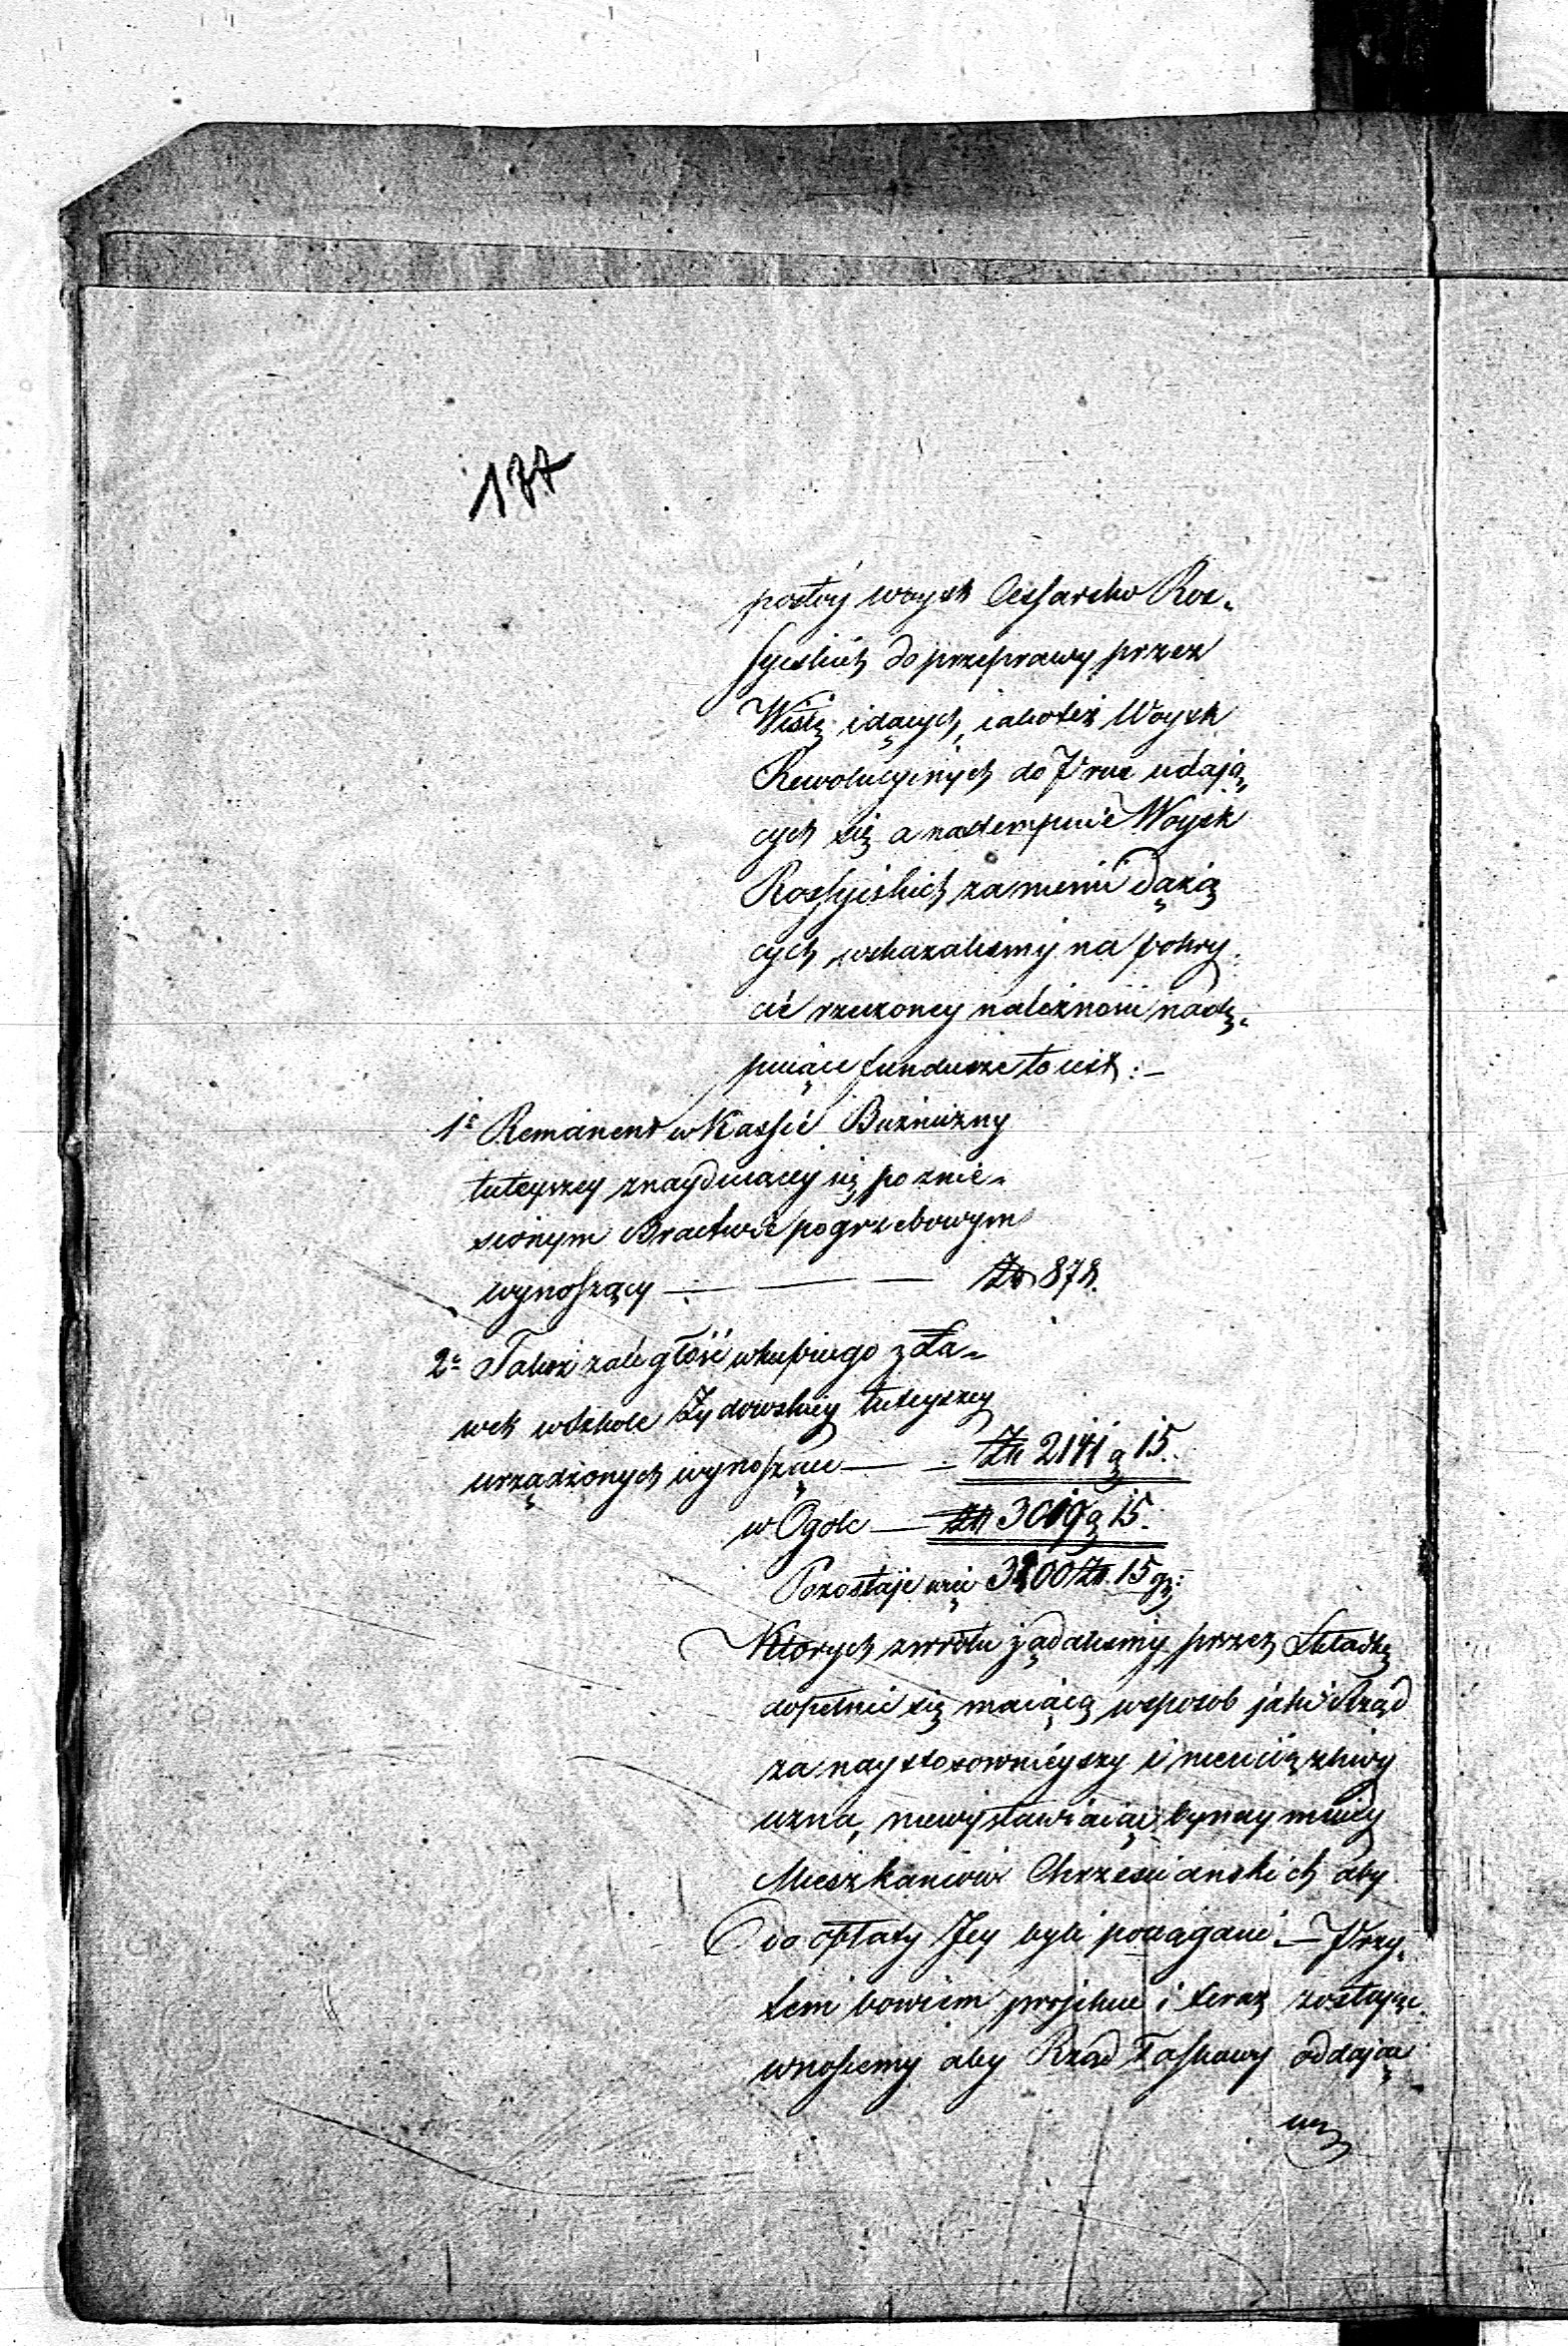 177
postoy woysk Cesſarsko Ros-
ſyiskich do przeprawy przez
Wisłę idących, iakoteż Woysk
Rewolucyinych do Prus udają-
cych się a nastempnie Woysk
Rosſyiskich za niemi dążą
cych, wskazalismy na pokry-
cie rzeczoney należności nastę-
puiące fundusze to iest:-
1e Remanent w Kasſie Bużniczny
tuteyszey znayduiącey się po znie-
sionym Bractwie pogrzebowym
wynoszący — — — Zł 878.
2e Takoż zaległość wkupnego z Ła-
wek w Szkole Żydowskiey tuteyszey
urządzonych wynoszące — - Zł 2141 g 15.
w Ogole — Zł 3019 g 15.
Pozostaje więc 3100 Zł. 15 gr:
Ktorych zwrotu żądalismy przez Składkę
dopełnić się maiącą w sposob jaki Rząd
za naystosownieyszy i nieuciążliwy
uzna, niewystawiaiąc bynaymniey
Mieszkancow Chrzescianskich aby
do opłaty Jey byli pociągani. — Przy-
tem bowiem projekcie i teraz zostając
wnosiemy aby Rząd Łaskawy oddając